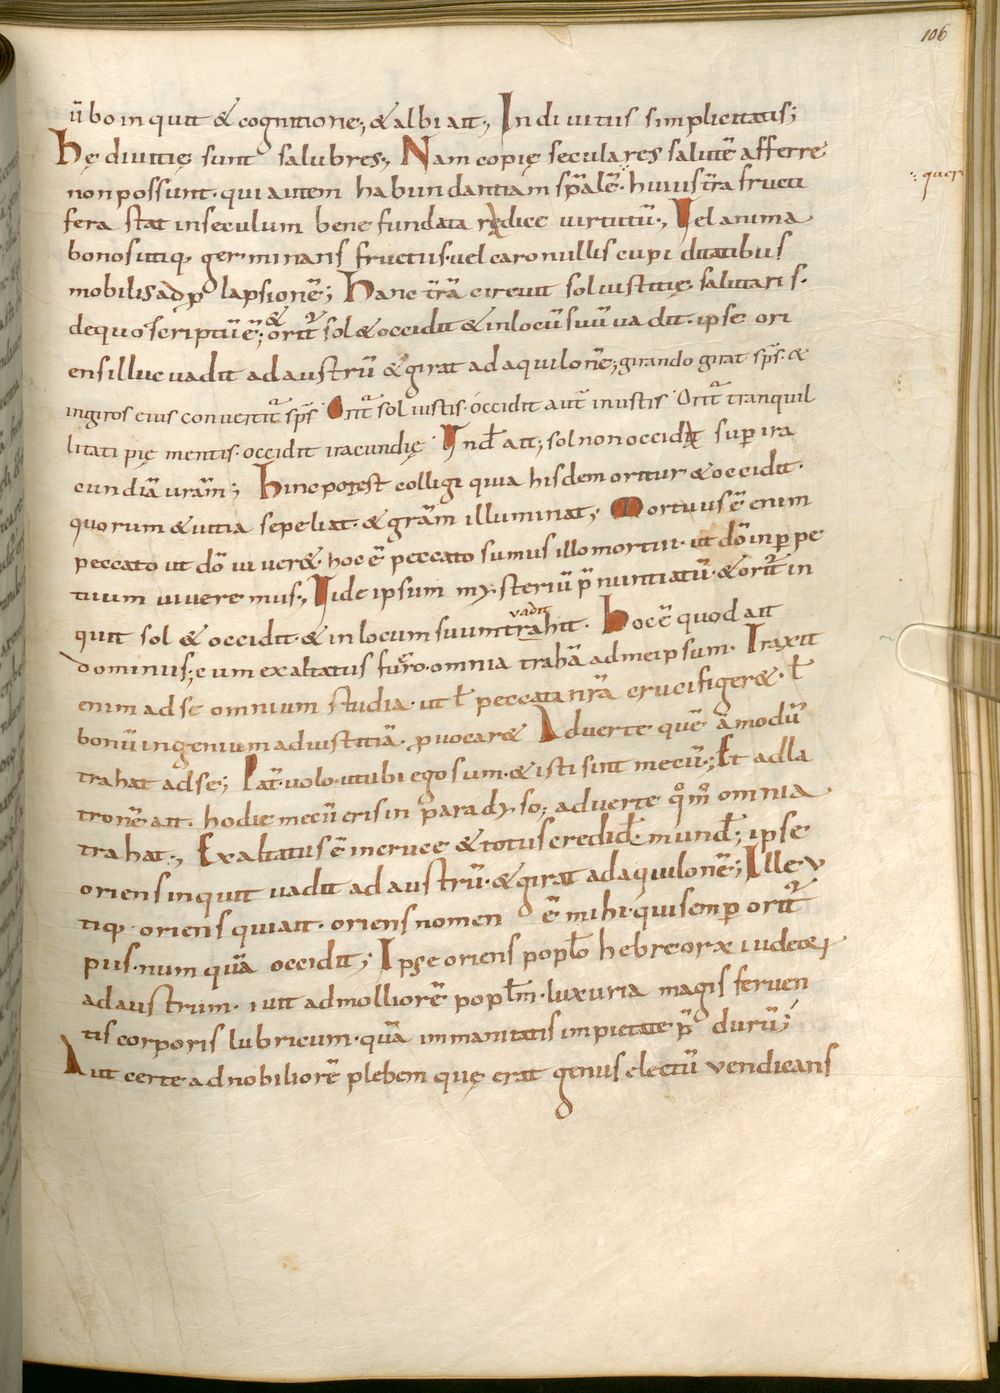 106
ūbo inquit & cognitione; & alibi ait; In divitiis simplicitatis;
hę divitię sunt salubres; Nam copię seculares salutē afferre
non possunt· qui autem habundantiam sp̄alē· huius t̄ra fructi
fera stat in seculum bene fundata radice virtutū; Vel anima
bonos utiq; germinans fructus· vel caro nullis cupiditatibus
mobilis ad p̱lapsionē; Hanc t̄rā circuit sol iustitię salutaris·
de quo scriptū ē; & orit᷑ sol & occidit & in locū suū vadit· ipse ori
ens illuc vadit ad austrū & girat ad aquilonē; girando girat sp̄s· &
in giros eius convertit᷑ sp̄s Orit᷑ sol iustis· occidit aut̄ iniustis Orit᷑ tranquil
litati pię mentis· occidit iracundię Vnd̄ ait; sol non occidat sup̱ ira
cundiā vr̄am; Hinc potest colligi quia hisdem oritur & occidit·
quorum & vitia sepeliat· & gr̄am illuminat; Mortuus ē enim
peccato ut dō viver&· hoc ē peccato sumus illo mortui· ut dō in p̱pe
tuum viveremus; Vide ipsum mysteriū p̄nuntiatū· & orit᷑ in
vadit
quit sol & occidit· & in locum suum trahit· Hoc ē quod ait
dominus; cum exaltatus fuero· omnia trahā ad me ipsum· Traxit
enim ad se omnium studia· ut ł peccata nr̄a crucifiger&· ł
bonū ingenium ad iustitiā· provocar& Adverte quē ammodū
trahat ad se; Pat̄ volo· ut ubi ego sum· & isti sint mecū; Et ad la
tronē ait· hodie mecū eris in paradyso; adverte qͦmͦ omnia
trahat; Exaltatus ē in cruce & totus credid̄· mund̄; ipse
oriens inquit vadit ad austrū· & girat ad aquilonē; Ille v
tiq; oriens qui ait· oriens nomen ē mihi· qui semp̱ orit᷑
piis· numquā occidit; Ipse oriens popło hebreorꝝ iudeęe
ad austrum· ivit ad molliorē popłm· luxuria magis ferven
tis corporis lubricum· quā immanitatis impietate p̄durū;
Aut certe ad nobiliorē plebem quę erat genus electū vendicans